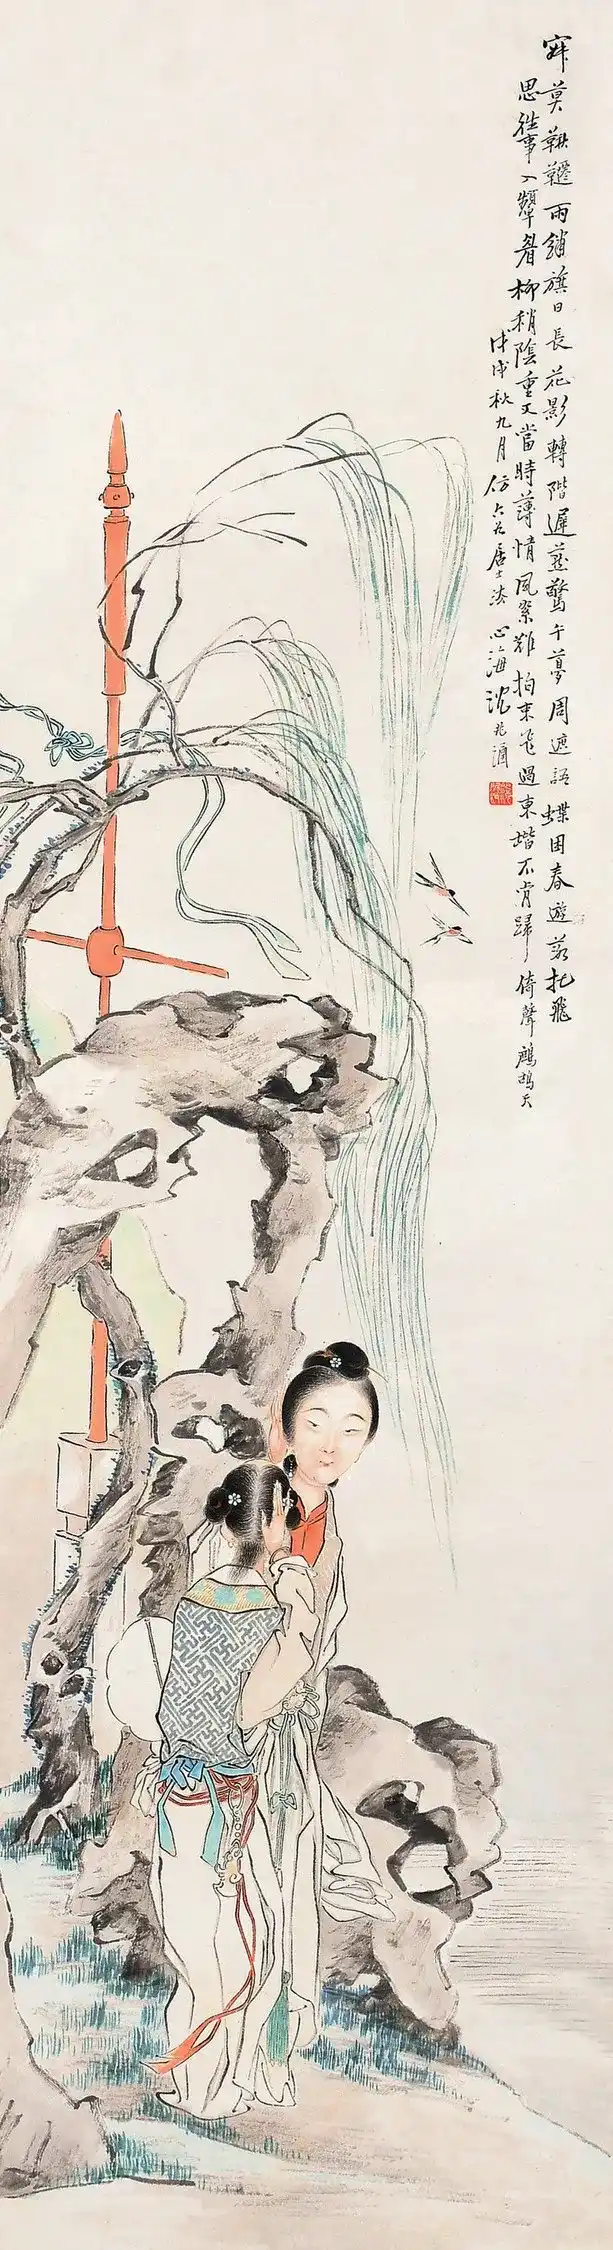 寂莫鞦韆雨綃旗日長花影轉階遲燕驚午夢周遮語蝶困春遊落托飛
思往事入顰眉柳稍陰重又當時薄情風絮難拘束飛過東墻不肯歸 倚聲鷓鴣天
戊戌秋九月仿六如居士法 心海沈兆涵